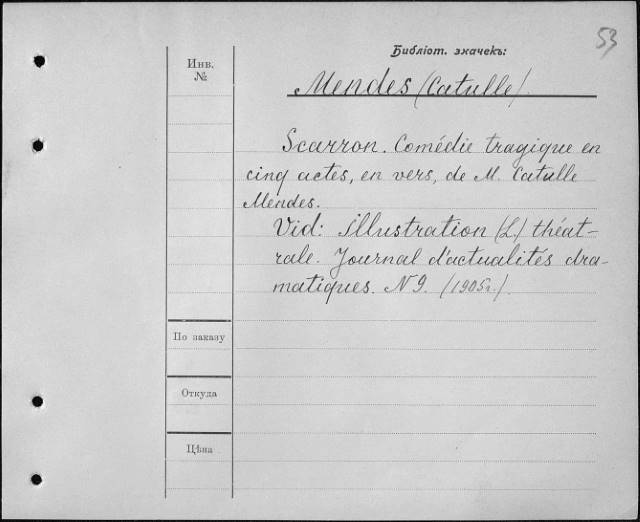 53
Библіот. значекъ:
Инв.
№
Mendes (Catulle).
Scarron. Comédie tragique en
cinq actes, en vers, de M. Catulle
Mendès.
Vid: illustration (L') théat-
rale. Journal d'actualités dra-
matiques. N 9. (1905г.).
По заказу
Откуда
Цѣна